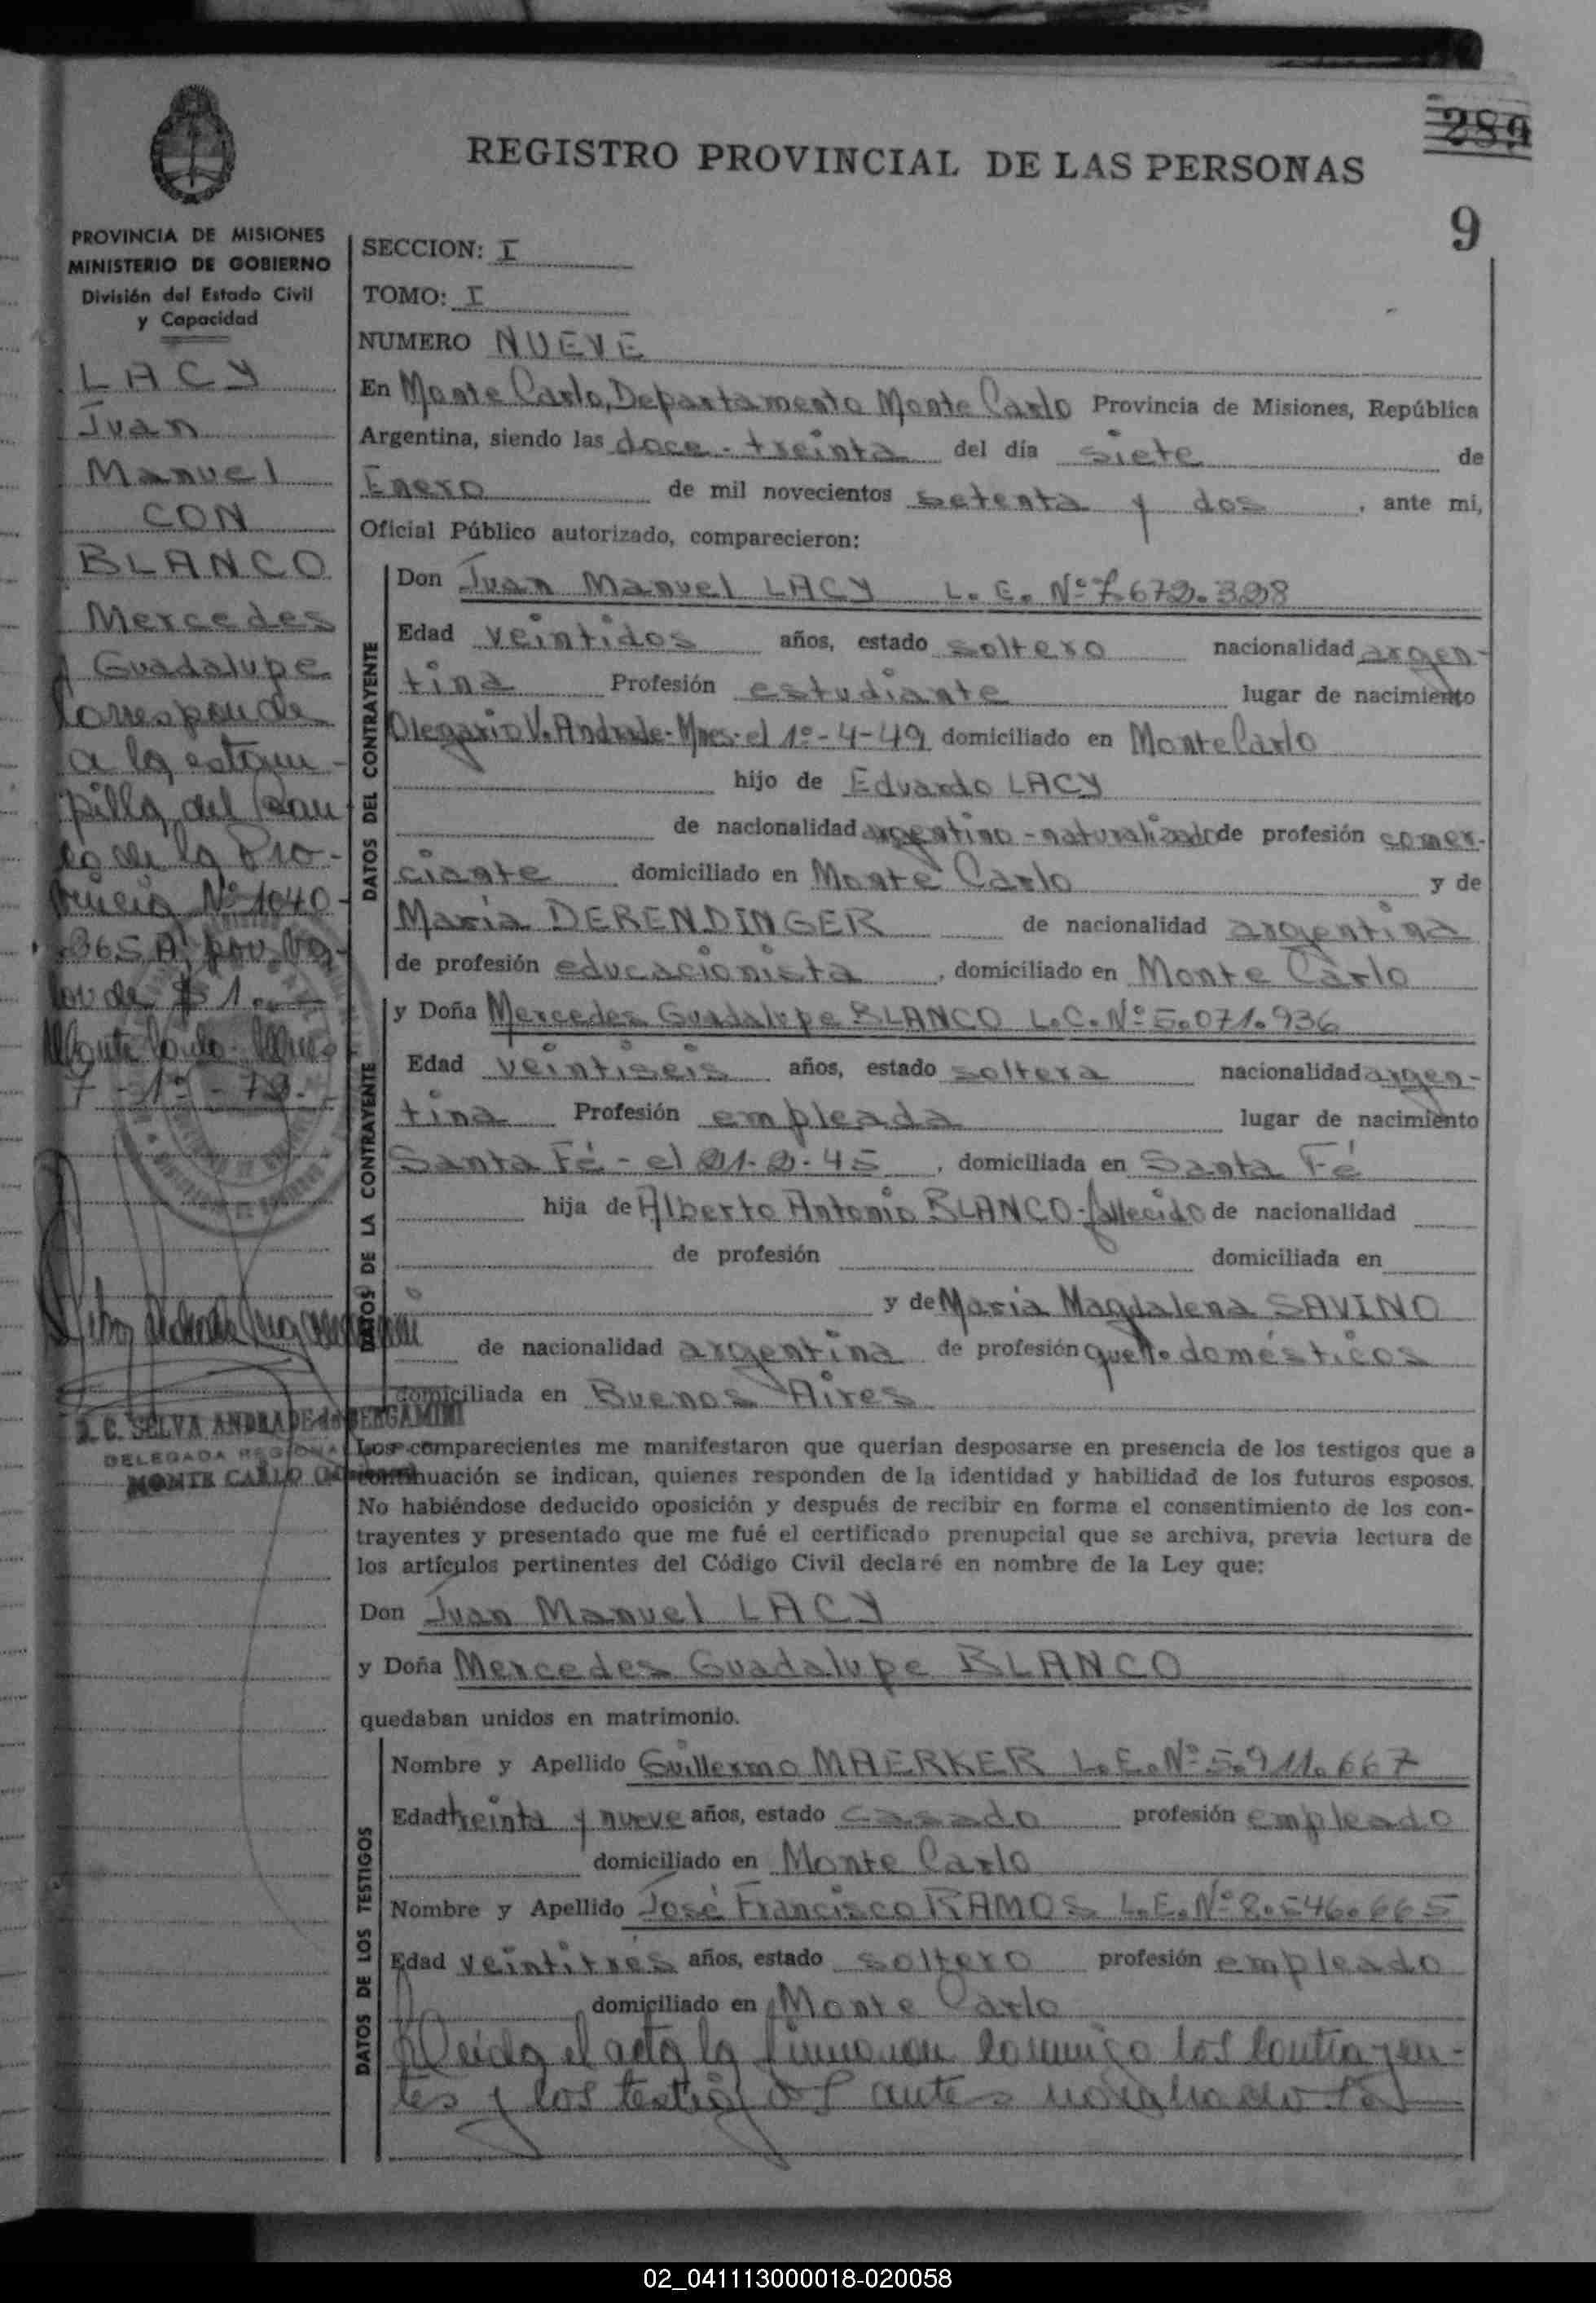 289
REGISTRO PROVINCIAL DE LAS PERSONAS
9
PROVINCIA DE MISIONES
MINISTERIO DE GOBIERNO
División del Estado Civil
y Capacidad
LACY
Juan
Manuel
CON
BLANCO
Mercedes
Guadalupe
Corresponde
a la estam-
pilla del Ban
co de la Pro-
vincia Nº 1040-
365 A, por va-
lor de $ 1.
Monte Carlo
7-1º-72.-
S. C. SELVA ANDRADE de BERGAMINI
DELEGADA REGIONAL
MONTE CARLO
SECCION: I
TOMO: I
NUMERO NUEVE
En Monte Carlo, Departamento Monte Carlo Provincia de Misiones, República
Argentina, siendo las doce-treinta del día siete de
Enero de mil novecientos setenta y dos, ante mi,
Oficial Público autorizado, comparecieron:
DATOS DEL CONTRAYENTE
Don Juan Manuel LACY L. E. Nº 7.672.328
Edad veintidos años, estado soltero nacionalidad argen-
tina Profesión estudiante lugar de nacimiento
Olegario V. Andrade-Mnes-el 1º-4-49 domiciliado en Monte Carlo
hijo de Eduardo LACY
de nacionalidad argentino-naturalizado de profesión comer-
ciante domiciliado en Monte Carlo y de
Maria DERENDINGER de nacionalidad argentina
de profesión educacionista, domiciliado en Monte Carlo
DATOS DE LA CONTRAYENTE
y Doña Mercedes Guadalupe BLANCO L.C. Nº 5.071.936
Edad veintiseis años, estado soltera nacionalidad argen-
tina Profesión empleada lugar de nacimiento
Santa Fé - el 21-2-45, domiciliada en Santa Fé
hija de Alberto Antonio BLANCO-fallecido de nacionalidad
de profesión domiciliada en
y de Maria Magdalena SAVINO
de nacionalidad argentina de profesión domésticos
domiciliada en Buenos Aires
Los comparecientes me manifestaron que querian desposarse en presencia de los testigos que a
continuación se indican, quienes responden de la identidad y habilidad de los futuros esposos.
No habiéndose deducido oposición y después de recibir en forma el consentimiento de los con-
trayentes y presentado que me fué el certificado prenupcial que se archiva, previa lectura de
los artículos pertinentes del Código Civil declaré en nombre de la Ley que:
Don Juan Manuel LACY
y Doña Mercedes Guadalupe BLANCO
quedaban unidos en matrimonio.
DATOS DE LOS TESTIGOS
Nombre y Apellido Guillermo MAERKER L.E. Nº 5.911.667
Edad treinta y nueve años, estado casado profesión empleado
domiciliado en Monte Carlo
Nombre y Apellido José Francisco RAMOS L.E. Nº 8.546.665
Edad veintitres años, estado soltero profesión empleado
domiciliado en Monte Carlo
Leida el acta la firmaron conmigo los contrayen-
tes y los testigos antes nombrados
02_041113000018-020058